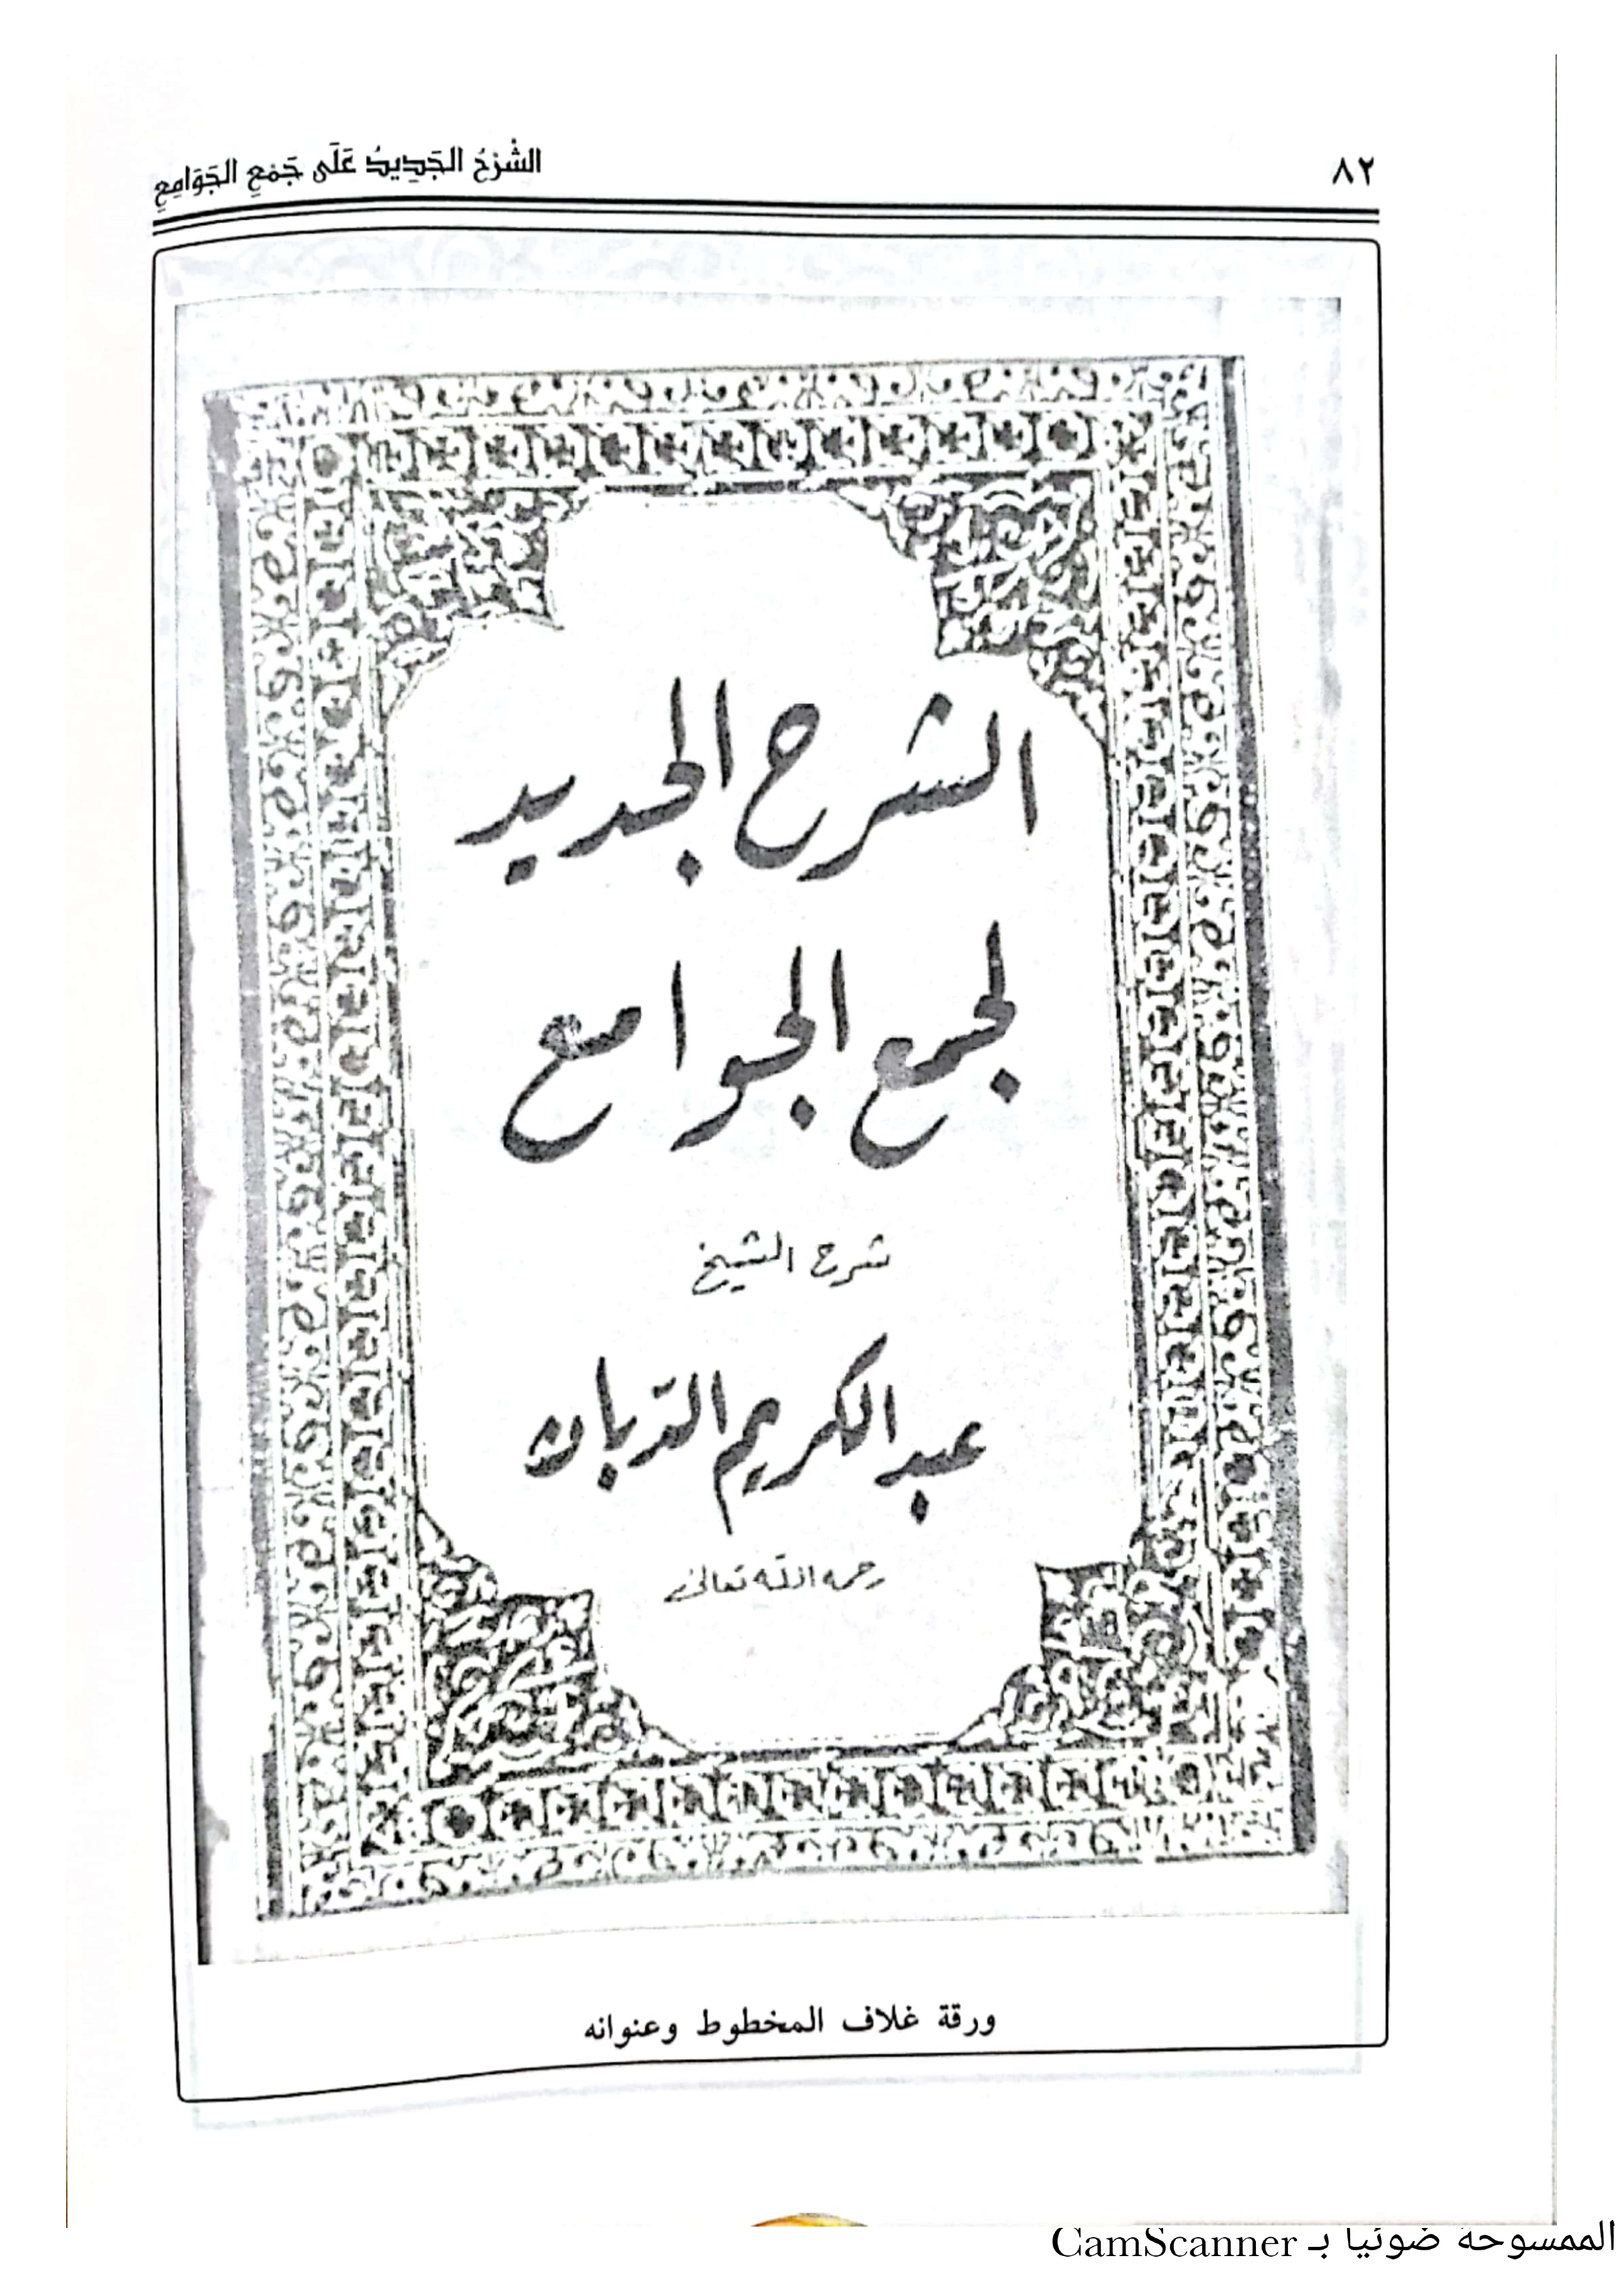 ٨٢
الشَّرْحُ الجَدِيدُ عَلَى جَمْعِ الجَوَامِعِ
الشرح الجديد
لجمع الجوامع
شرح الشيخ
عبد الكريم الدّبان
رحمه الله تعالى
ورقة غلاف المخطوط وعنوانه
الممسوحة ضوئيا بـ CamScanner